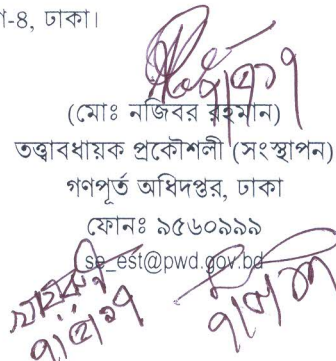 -৪, ঢাকা।
(মোঃ নজিবর রহমান)
তত্ত্বাবধায়ক প্রকৌশলী (সংস্থাপন)
গণপূর্ত অধিদপ্তর, ঢাকা
ফোনঃ ৯৫৬০৯৯৯
se_est@pwd.gov.bd